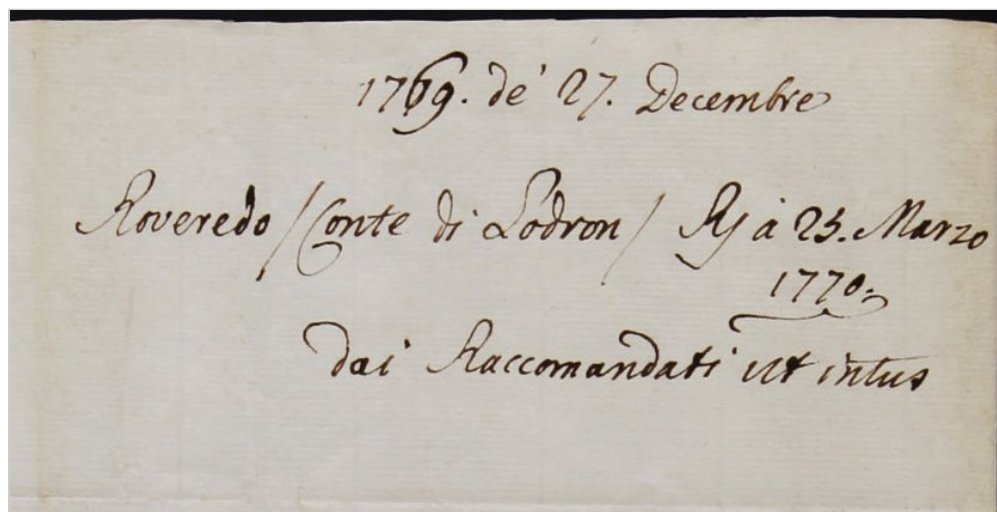 1769. de' 27. Decembre
Roveredo / Conte di Lodron / Rj à 25. Marzo
1770.
dai Raccomandati ut intus